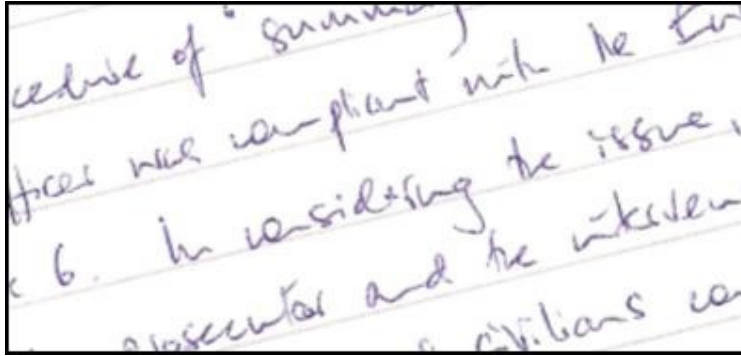 of "summary
was compliant with the Eur
6. In considering the issue,
prosecutor and the interven
civilians con